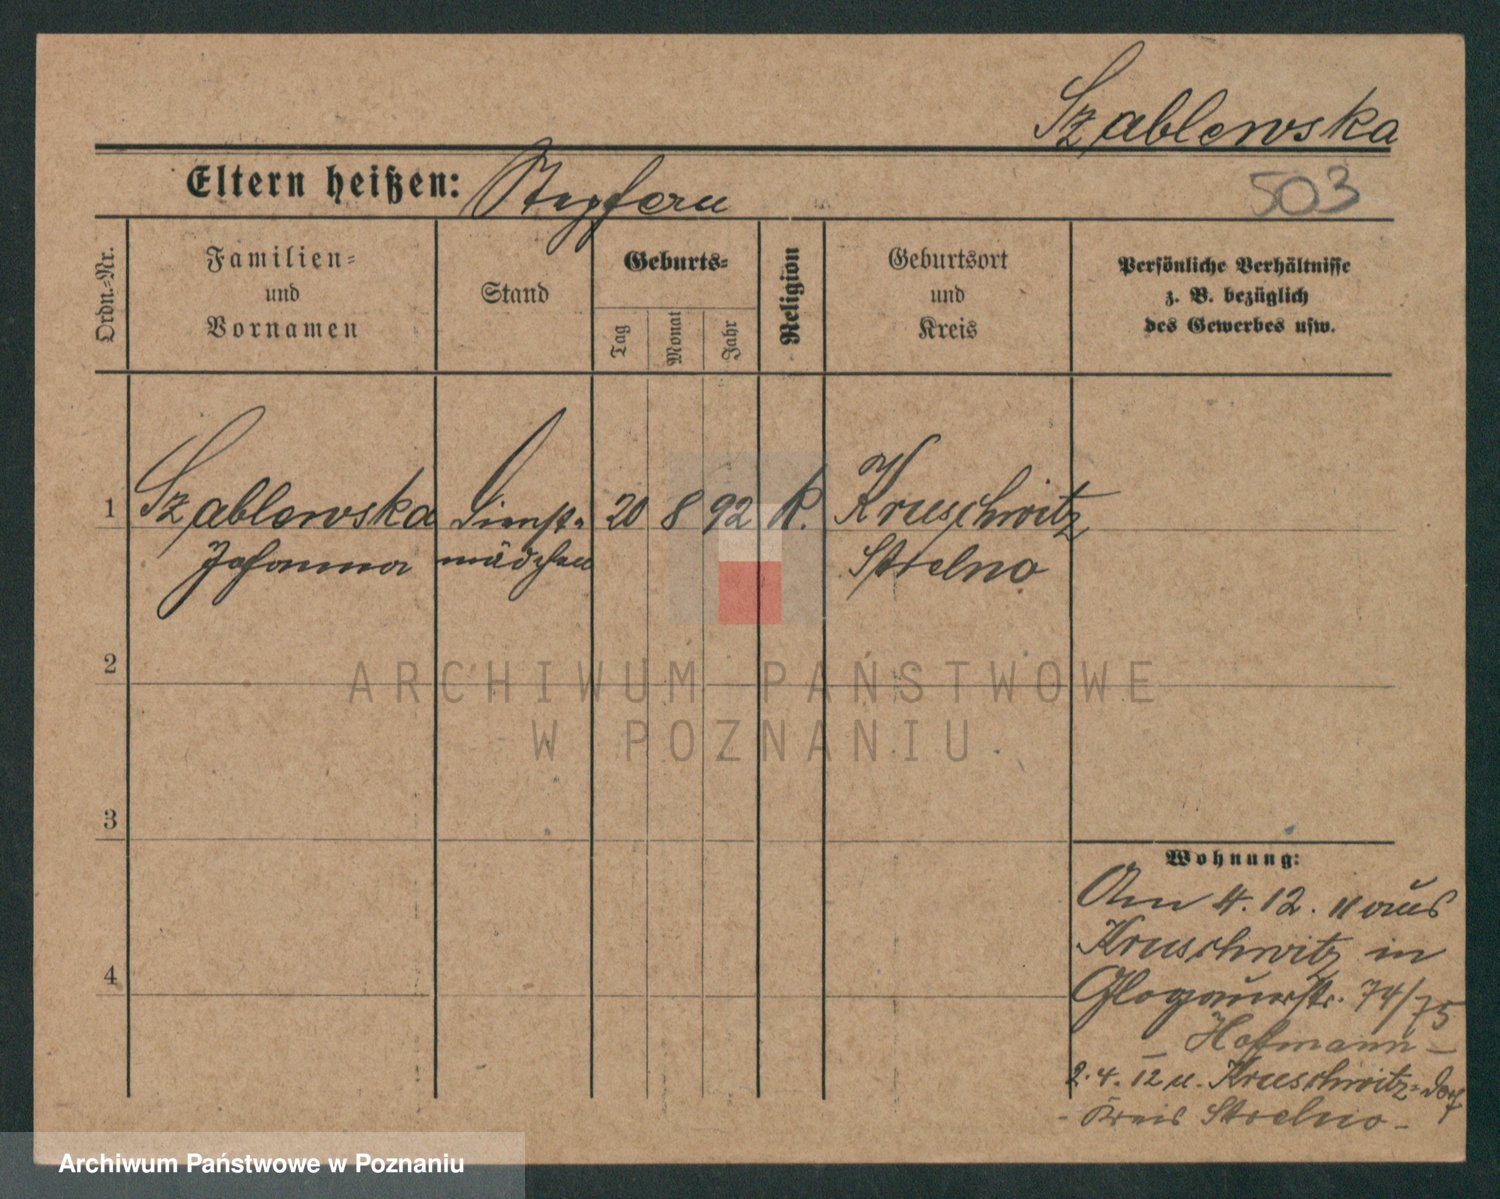 Szablewska
Eltern heißen: Stepfan
503
Ordn.-Nr.
Familien-
und
Vornamen
Stand
Geburts-
Tag
Monat
Jahr
Religion
Geburtsort
und
Kreis
Persönliche Verhältnisse
z. B. bezüglich
des Gewerbes usw.
1 Szablewska Dienst- 20 8 92 k. Kruschwitz
Johanna mädchen Strelno
2
3
4
Wohnung:
Am 4. 12. 11 aus
Kruschwitz in
Glogauerstr. 74/75
Hoffmann –
2. 4. 12 n. Kruschwitz-Dorf
- Kreis Strelno -
ARCHIWUM PAŃSTWOWE
W POZNANIU
Archiwum Państwowe w Poznaniu